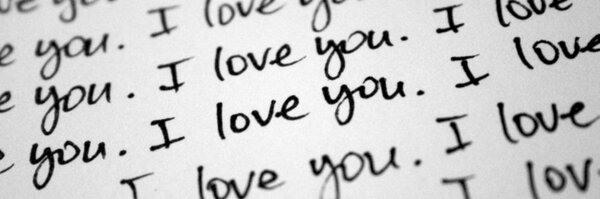 e you. I love you
e you. I love you. I love
e you. I love you. I love
I love you. I love
I lov